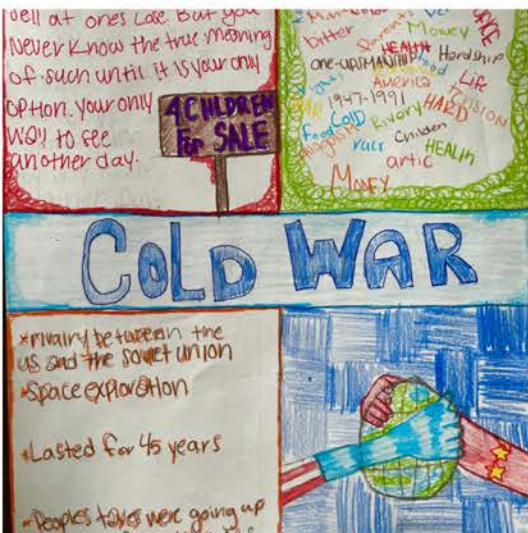 sell at ones Lose. But you
Never Know the true meaning
of such until it is your only
OPtion. Your only
way to see
another day.
4 CHILDREN
For SALE
bitter
Money
HEALTH
Hardship
one-upsMANSHIP
Life
America
TENSION
1947-1991
HARD
Food
COLD
Rivory
Children
race
HEALTH
artic
MONEY
COLD WAR
*rivalry between the
US and the soviet union
*Space exploration
*Lasted for 45 years
*Peoples taxes were going up